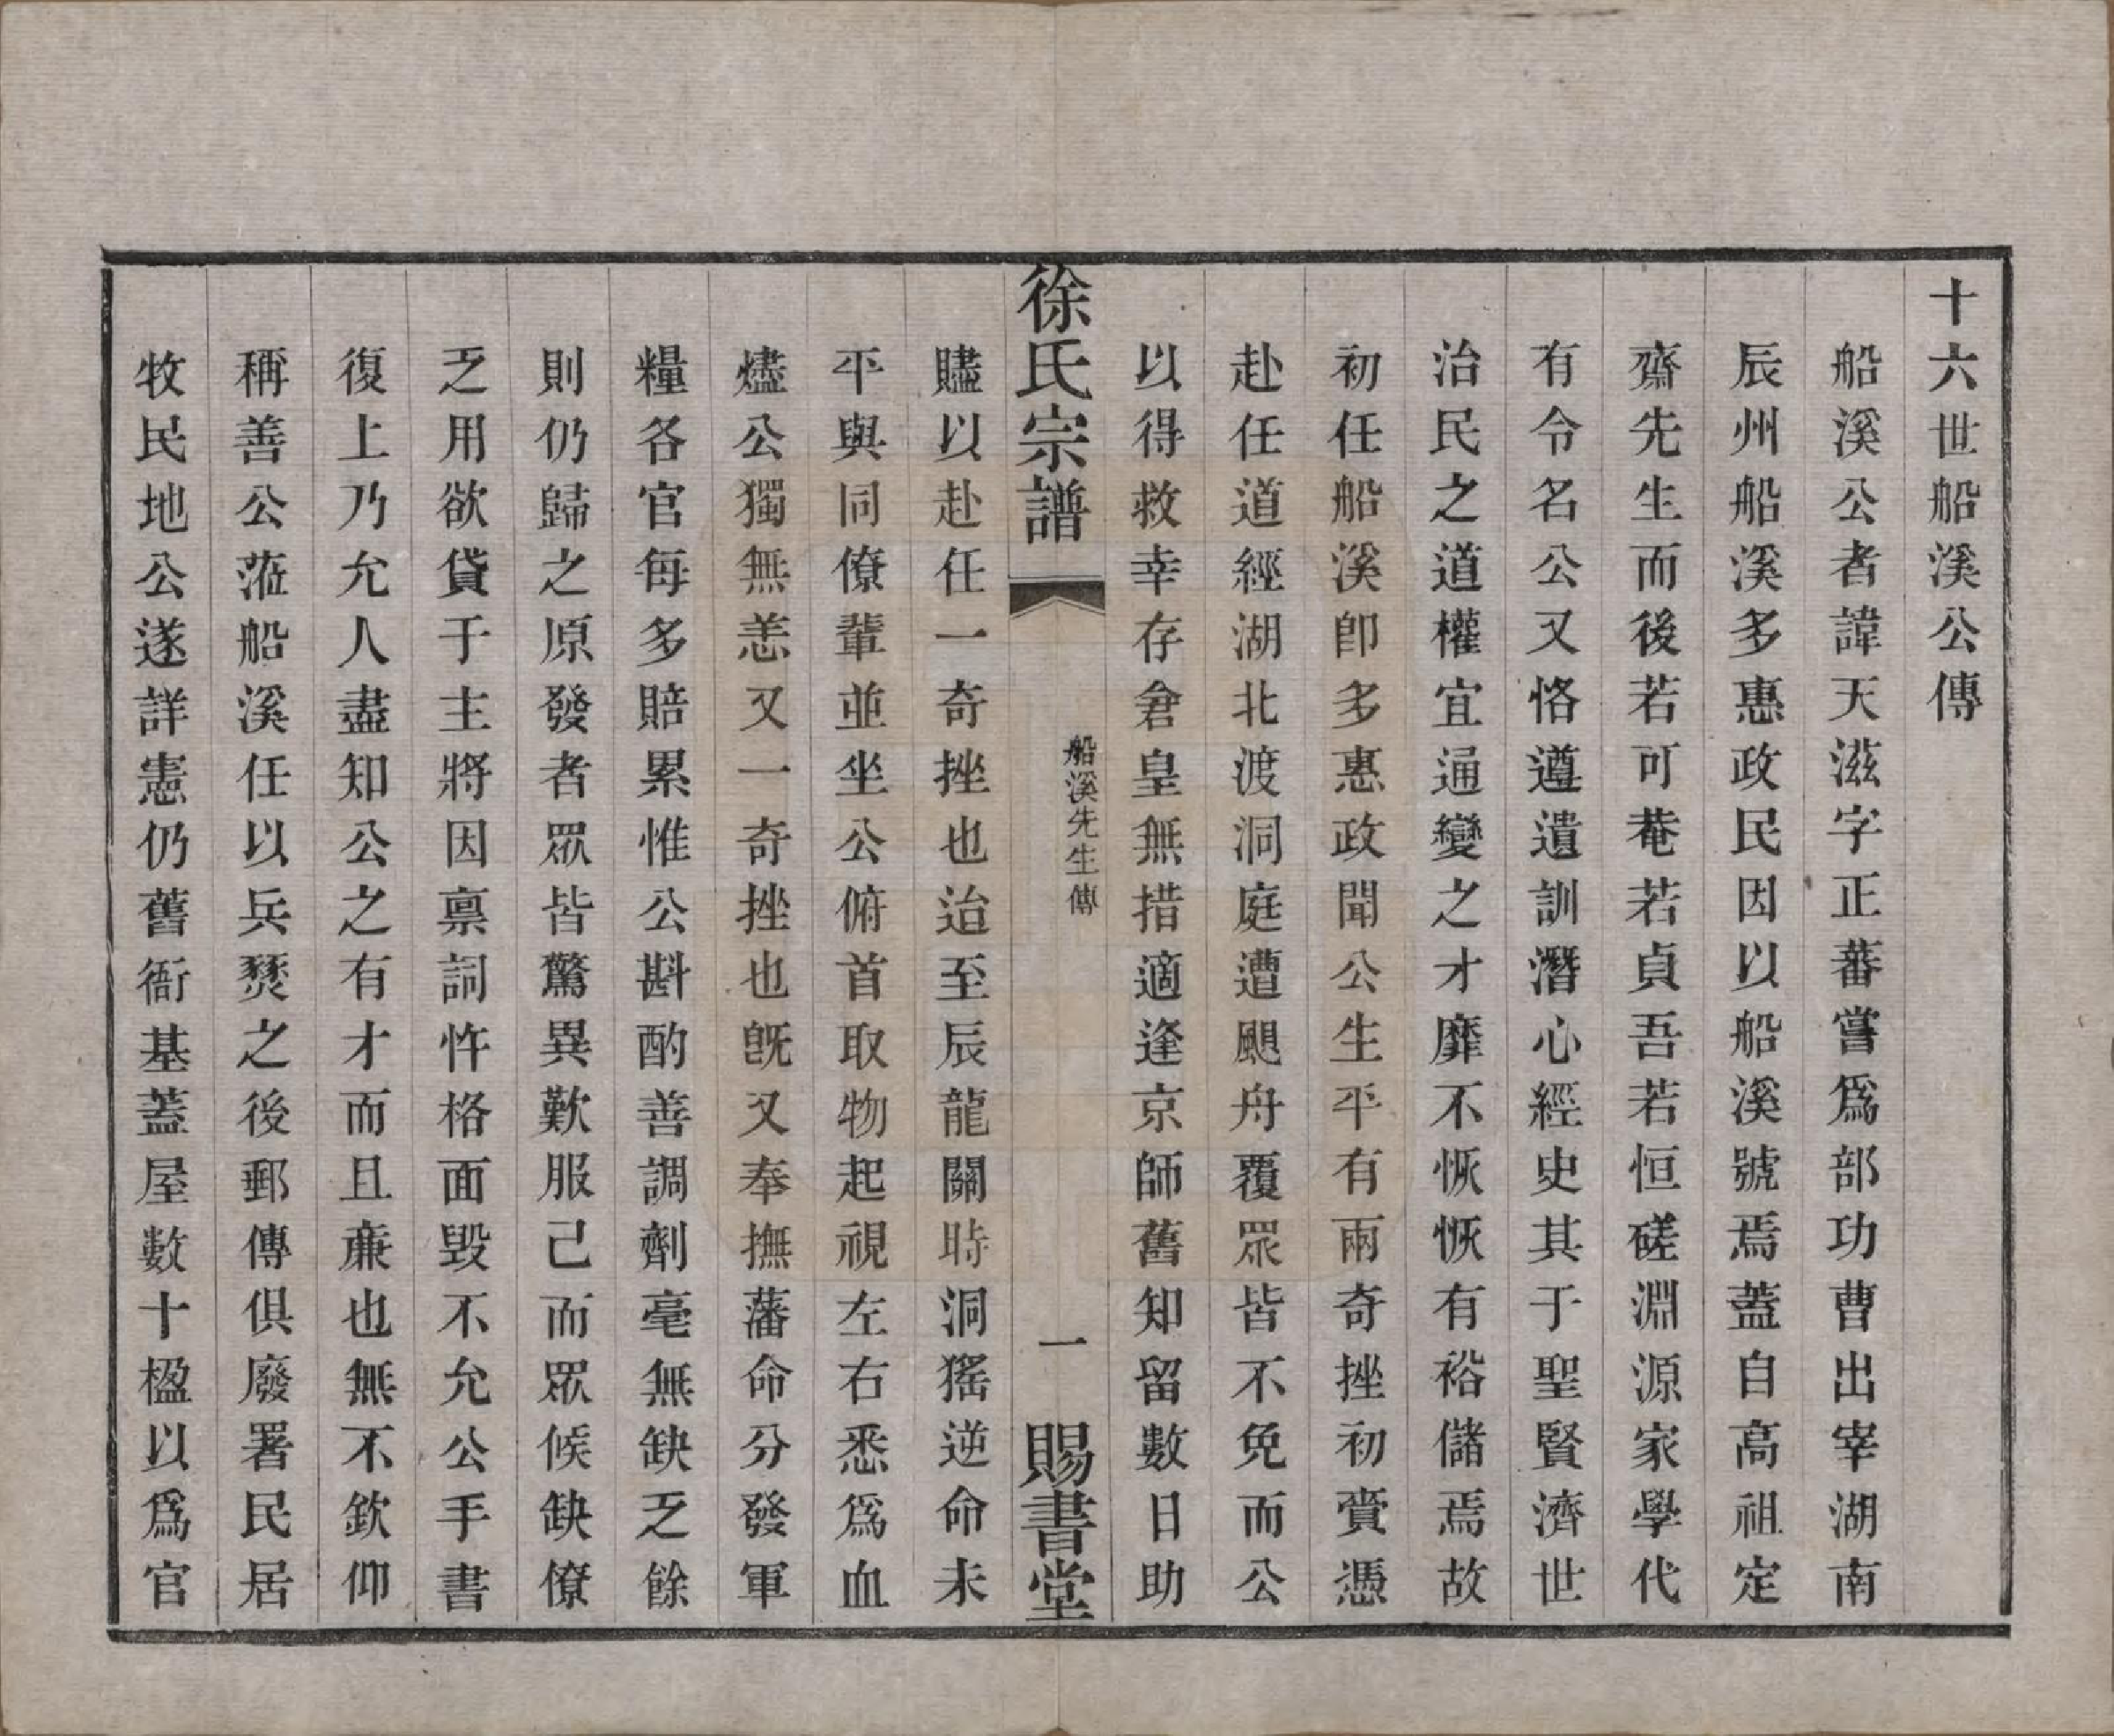 十六世船溪公傳
船溪公者諱天滋字正蕃嘗爲部功曹出宰湖南
辰州船溪多惠政民因以船溪號焉蓋自高祖定
齋先生而後若可菴若貞吾若恒磋淵源家學代
有令名公又恪遵遺訓潛心經史其于聖賢濟世
治民之道權宜通變之才靡不恢恢有裕儲焉故
初任船溪卽多惠政聞公生平有兩奇挫初賫憑
赴任道經湖北渡洞庭遭颶舟覆眾皆不免而公
以得救幸存倉皇無措適逢京師舊知留數日助
贐以赴任一奇挫也迨至辰龍關時洞猺逆命未
平與同僚輩並坐公俯首取物起視左右悉爲血
燼公獨無恙又一奇挫也旣又奉撫藩命分發軍
糧各官每多賠累惟公斟酌善調劑毫無缺乏餘
則仍歸之原發者眾皆驚異歎服己而眾候缺僚
乏用欲貸于主將因禀詞忤格面毀不允公手書
復上乃允人盡知公之有才而且廉也無不欽仰
稱善公蒞船溪任以兵燹之後郵傳俱廢署民居
牧民地公遂詳憲仍舊衙基蓋屋數十楹以爲官
徐氏宗譜
船溪先生傳
一
賜書堂